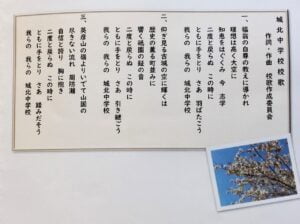 城北中学校 校歌
作詞・作曲 校歌作成委員会
一、福翁の自尊の教えに導かれ
理想は高く大空に
知恵をはぐくみ 今 志学
二度と戻らぬ この時に
ともに手をとり さあ 羽ばたこう
我らの 我らの 城北中学校
二、仰ぎ見る古城の空に輝くは
歴史の薫る町並みに
響く祇園の鉦の音
二度と戻らぬ この時に
ともに手をとり さあ 引き継ごう
我らの 我らの 城北中学校
三、英彦山の頂よりいでて山国の
尽きない流れ 周防灘
自信と誇り 胸に抱き
二度と戻らぬ この時に
ともに手をとり さあ 踏みだそう
我らの 我らの 城北中学校